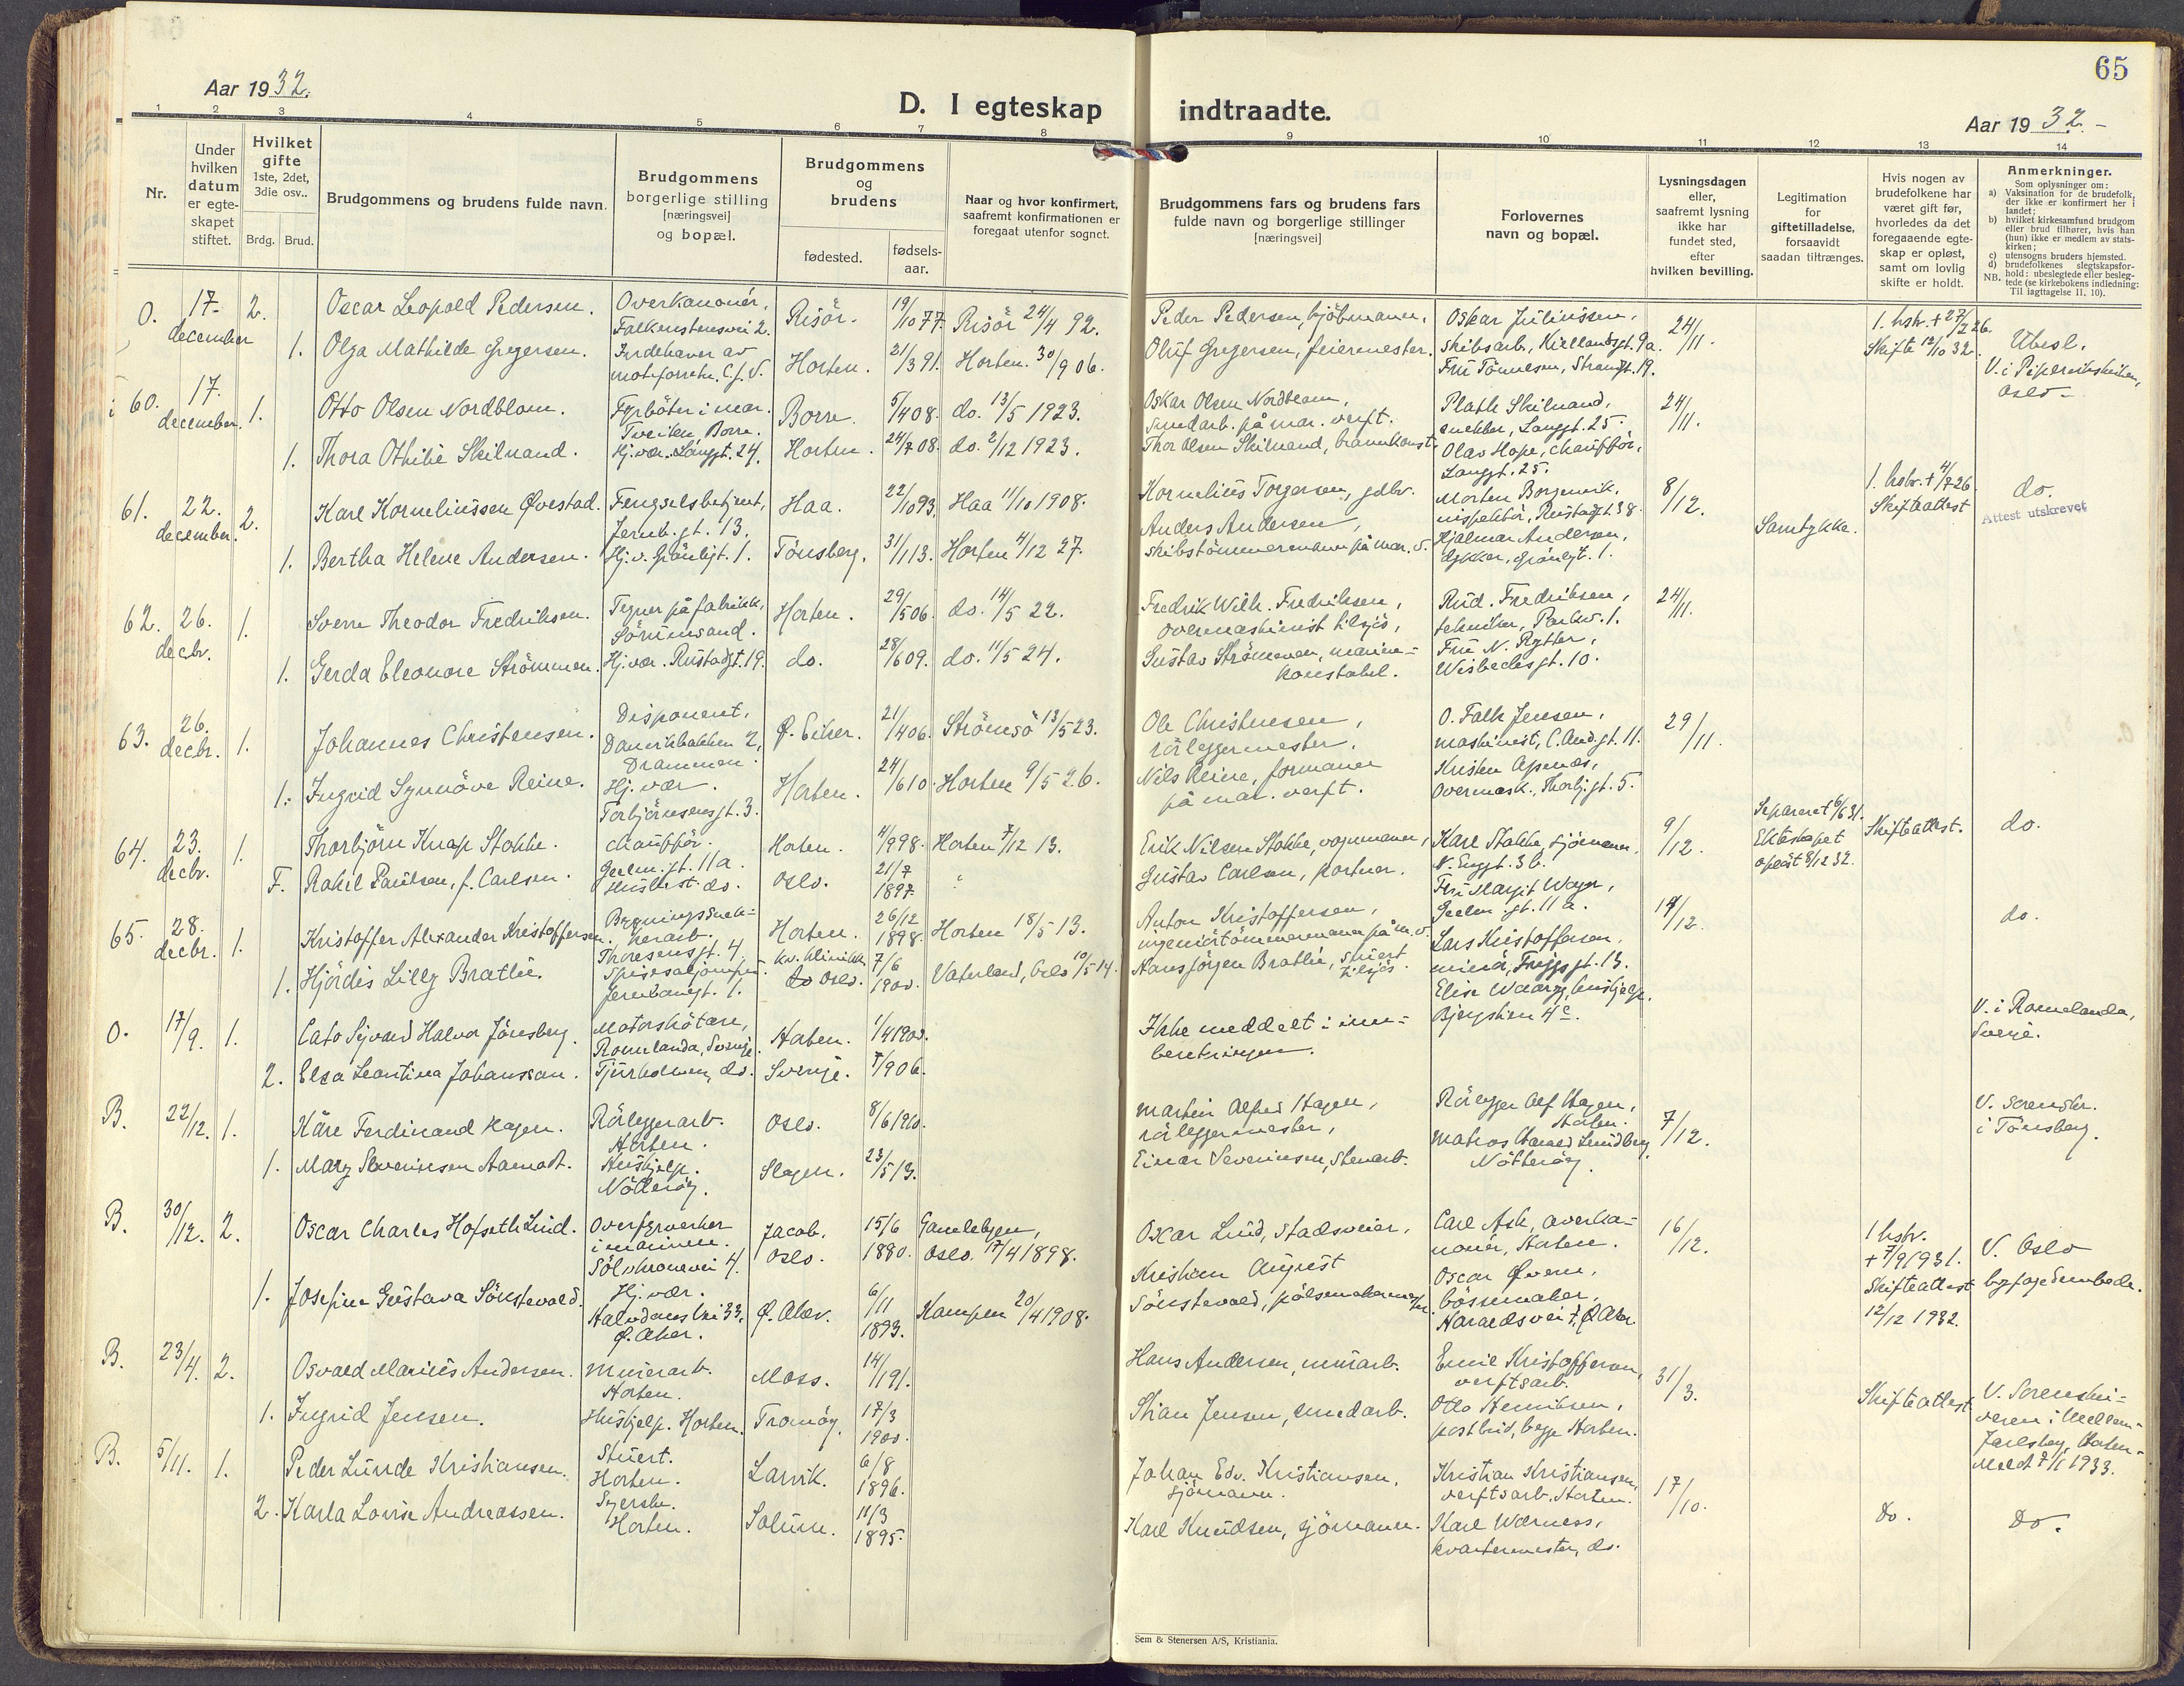 65
Aar 1932.
D. I egteskap indtraadte.
Aar 1932.-
1 2 3 4 5 6 7 8 9 10 11 12 13 14
Nr.
Under hvilken datum er egteskapet stiftet.
Hvilket gifte 1ste, 2det, 3die osv..
Brdg. Brud.
Brudgommens og brudens fulde navn.
Brudgommens borgerlige stilling [næringsvei] og bopæl.
Brudgommens og brudens
fødested.
fødsels-aar.
Naar og hvor konfirmert, saafremt konfirmationen er foregaat utenfor sognet.
Brudgommens fars og brudens fars fulde navn og borgerlige stillinger [næringsvei]
Forlovernes navn og bopæl.
Lysningsdagen eller, saafremt lysning ikke har fundet sted, efter hvilken bevilling.
Legitimation for giftetilladelse, forsaavidt saadan tiltrænges.
Hvis nogen av brudefolkene har været gift før, hvorledes da det foregaaende egteskap er opløst, samt om lovlig skifte er holdt.
Anmerkninger.
Som oplysninger om:
a) Vaksination for de brudefolk, der ikke er konfirmert her i landet;
b) hvilket kirkesamfund brudgom eller brud tilhører, hvis han (hun) ikke er medlem av statskirken;
c) utensogns bruders hjemsted.
d) brudefolkenes slegtskapsforhold: ubeslegtede eller beslegtede (se kirkebokens indledning: Til iagttagelse II, 10).
NB.
0. 17- december 2. Oscar Leopold Pedersen. Overkanonér, Falkenstensvei 2. Risör. 19/10 77. Risör 24/4 92. Peder Pedersen, kjöbmann. Oskar Juliussen, skibsarb., Kiellandsgt. 9a. 24/11. 1. hstr. + 27/2 26. Skifte 12/10 32. Ubesl.
1. Olga Mathilde Gregersen. Indehaver av moteforretn. C.J.V. Horten. 21/3 91. Horten. 30/9 06. Oluf Gregersen, feiermester. Fru Tönnesen, Strandgt. 19. V. i Piperviksheiken, Oslo-
60. 17. december. 1. Otto Olsen Nordblom. Fyrböter i mar. Borre. 5/4 08. do. 13/5 1923. Oskar Olsen Nordblom, smedarb. på mar. verft. Plath Skilnand, snekker, Langgt. 25. 24/11.
1. Thora Othilie Skilnand. Hj. vær. Langgt. 24. Horten. 24/7 08. do. 2/12 1923. Thor Olsen Skilnand, Olav Hope, chaufför, Langgt. 25.
61. 22. december. 2. Karl Korneliussen Qvestad. Fengselsbetjent, Jernb.gt. 13. Haa. 22/10 93. Haa 11/10 1908. Kornelius Torgersen, gdbr. Morten Borgenvik, inspektör, Rustadgt. 38. 8/12. Samtykke. 1. hstr. + 4/7 26 Skifteattest do.
Attest utskrevet
1. Bertha Helene Andersen. Hj. v. Grönligt. 1. Tönsberg. 31/1 13. Horten 4/12 27. Anders Andersen, skibstömmermann på mar. v. Hjalmar Andersen, dykker, Grönligt. 1.
62. 26. decbr. 1. Sverre Theodor Fredriksen. Tegner på fabrikk, Sörumsand. Horten. 29/5 06. do. 14/5 22. Fredrik Wilh. Fredriksen, overmaskinist tilsjös, Rud. Fredriksen, tekniker, Parkv. 1. 24/11.
1. Gerda Eleonore Strömmen. Hj. vær. Rustadgt. 19. do. 28/6 09. do. 11/5 24. Gustav Strömmen, marinekonstabel. Fru N. Rytter, Wisbechsgt. 10.
63. 26. decbr. 1. Johannes Christensen. Disponent, Danvikbakken 2, Drammen. Ø. Eiker. 21/4 06. Strömsö 13/5 23. Ole Christensen, rörleggermester. O. Falk Jensen, maskinist, C. And.gt. 11. 29/11.
1. Ingrid Synnöve Reine. Hj. vær. Torbjörnsensgt. 3. Horten. 24/6 10. Horten 9/5 26. Nils Reine, formann på mar. verft. Kristen Apenæs, overmask., Thorbj.gt. 5.
64. 23. decbr. 1. Thorbjörn Knap Stokke. chaufför. Geelm.gt. 11a. Horten. 4/9 98. Horten 7/12 13. Erik Nilsen Stokke, vognmann, Karl Stokke, sjömann, N. Enggt. 36. 9/12. Separert 6/6 31. Ekteskapet oplöst 8/12 32. Skifteattest. do.
F. Rakel Paulsen, f. Carlsen. Huslest. do. Oslo. 21/7 1897 Gustav Carlsen, portner. Fru Margit Wager, Geelm.gt. 11a.
65. 28. decbr. 1. Kristoffer Alexander Kristoffersen. Bygningssnekkerarb. Thoresensgt. 4. Horten. 26/12 1898. Horten 18/5 13. Anton Kristoffersen, ingeniörtömmermann på m. v. Lars Kristoffersen, minör, Friggsgt. 13. 14/12. do.
1. Hjördis Lilly Bratlie. Jernbanegt. 1. kv. klinikk Oslo. 7/6 1900. Vaterland, Oslo 10/5 14. Hans Jörgen Bratlie, stuert tilsjös. Elise Waarg, huslijelp, Bjergstien 4c.
0. 17/9. 1. Cato Sigvard Halvor Jönsberg. Motorskötare, Romelanda, Sverige. Horten. 1/4 1900. Ikke meddelt i innberetningen. V. i Romelanda, Sverige.
2. Elsa Leontina Johansson. Tjurholmen, do. Sverige. 7/906.
B. 22/12. 1. Kåre Ferdinand Hagen. Rörleggerarb. Horten. Oslo. 8/6 1910. Martin Alfred Hagen, rörleggermester, Rörlegger Alf Hagen, Horten. 7/12. V. sorenskr. i Tönsberg.
1. Mary Severinsen Aamodt. Hushjelp. Nötteröy. Slagen. 23/5 13. Einar Severinsen, Stenarb. Matros Harald Lundberg Nötteröy.
B. 30/12. 2. Oscar Charles Hofseth Lind. Overfyrverker i marinen. Sölvkronevei 4. Jacob, Oslo. 15/6 1880. Gamlebyen, Oslo. 17/4 1898. Oscar Lind, stadsveier. Carl Ask, overkanonér, Horten. 16/12. 1 hstr. + 7/9 1931. Skifteattest 12/12 1932. V. Oslo byfogedembede.
1. Josefine Gustava Sönstevold. Hj. vær. Halvdans vei 33, Ø. Aker. Ø. Aker. 6/11 1893. Kampen 20/4 1908. Kristian August Sönstevold, pölsemakermester. Oscar Qvern, bössemaker, Haraldsvei 7, Ø. Aker.
B. 23/4. 2. Osvald Marius Andersen. Murerarb. Horten. Moss. 14/1 91. Hans Andersen, murarb. Emil Kristoffersen, verftsarb. 31/3. Skifteattest V. Sorenskriveren i Mellem-Jarlsberg, Horten- Meldt 7/1 1933.
1. Ingrid Jensen. Hushjelp. Horten. Tromöy. 17/3 1900. Stian Jensen, smedarb. Otto Henriksen, postbud, begge Horten.
B. 5/11. 1. Peder Lunde Kristiansen. Stuert. Horten. Larvik. 6/8 1896. Johan Edv. Kristiansen, sjömann. Kristian Kristiansen, verftsarb. Horten. 17/10. Do. Do.
2. Karla Lovise Andreassen. Syerske. Horten. Solum. 11/3 1895. Karl Knudsen, sjömann. Karl Wærness, kvartermester, do.
Sem & Stenersen A/S, Kristiania.